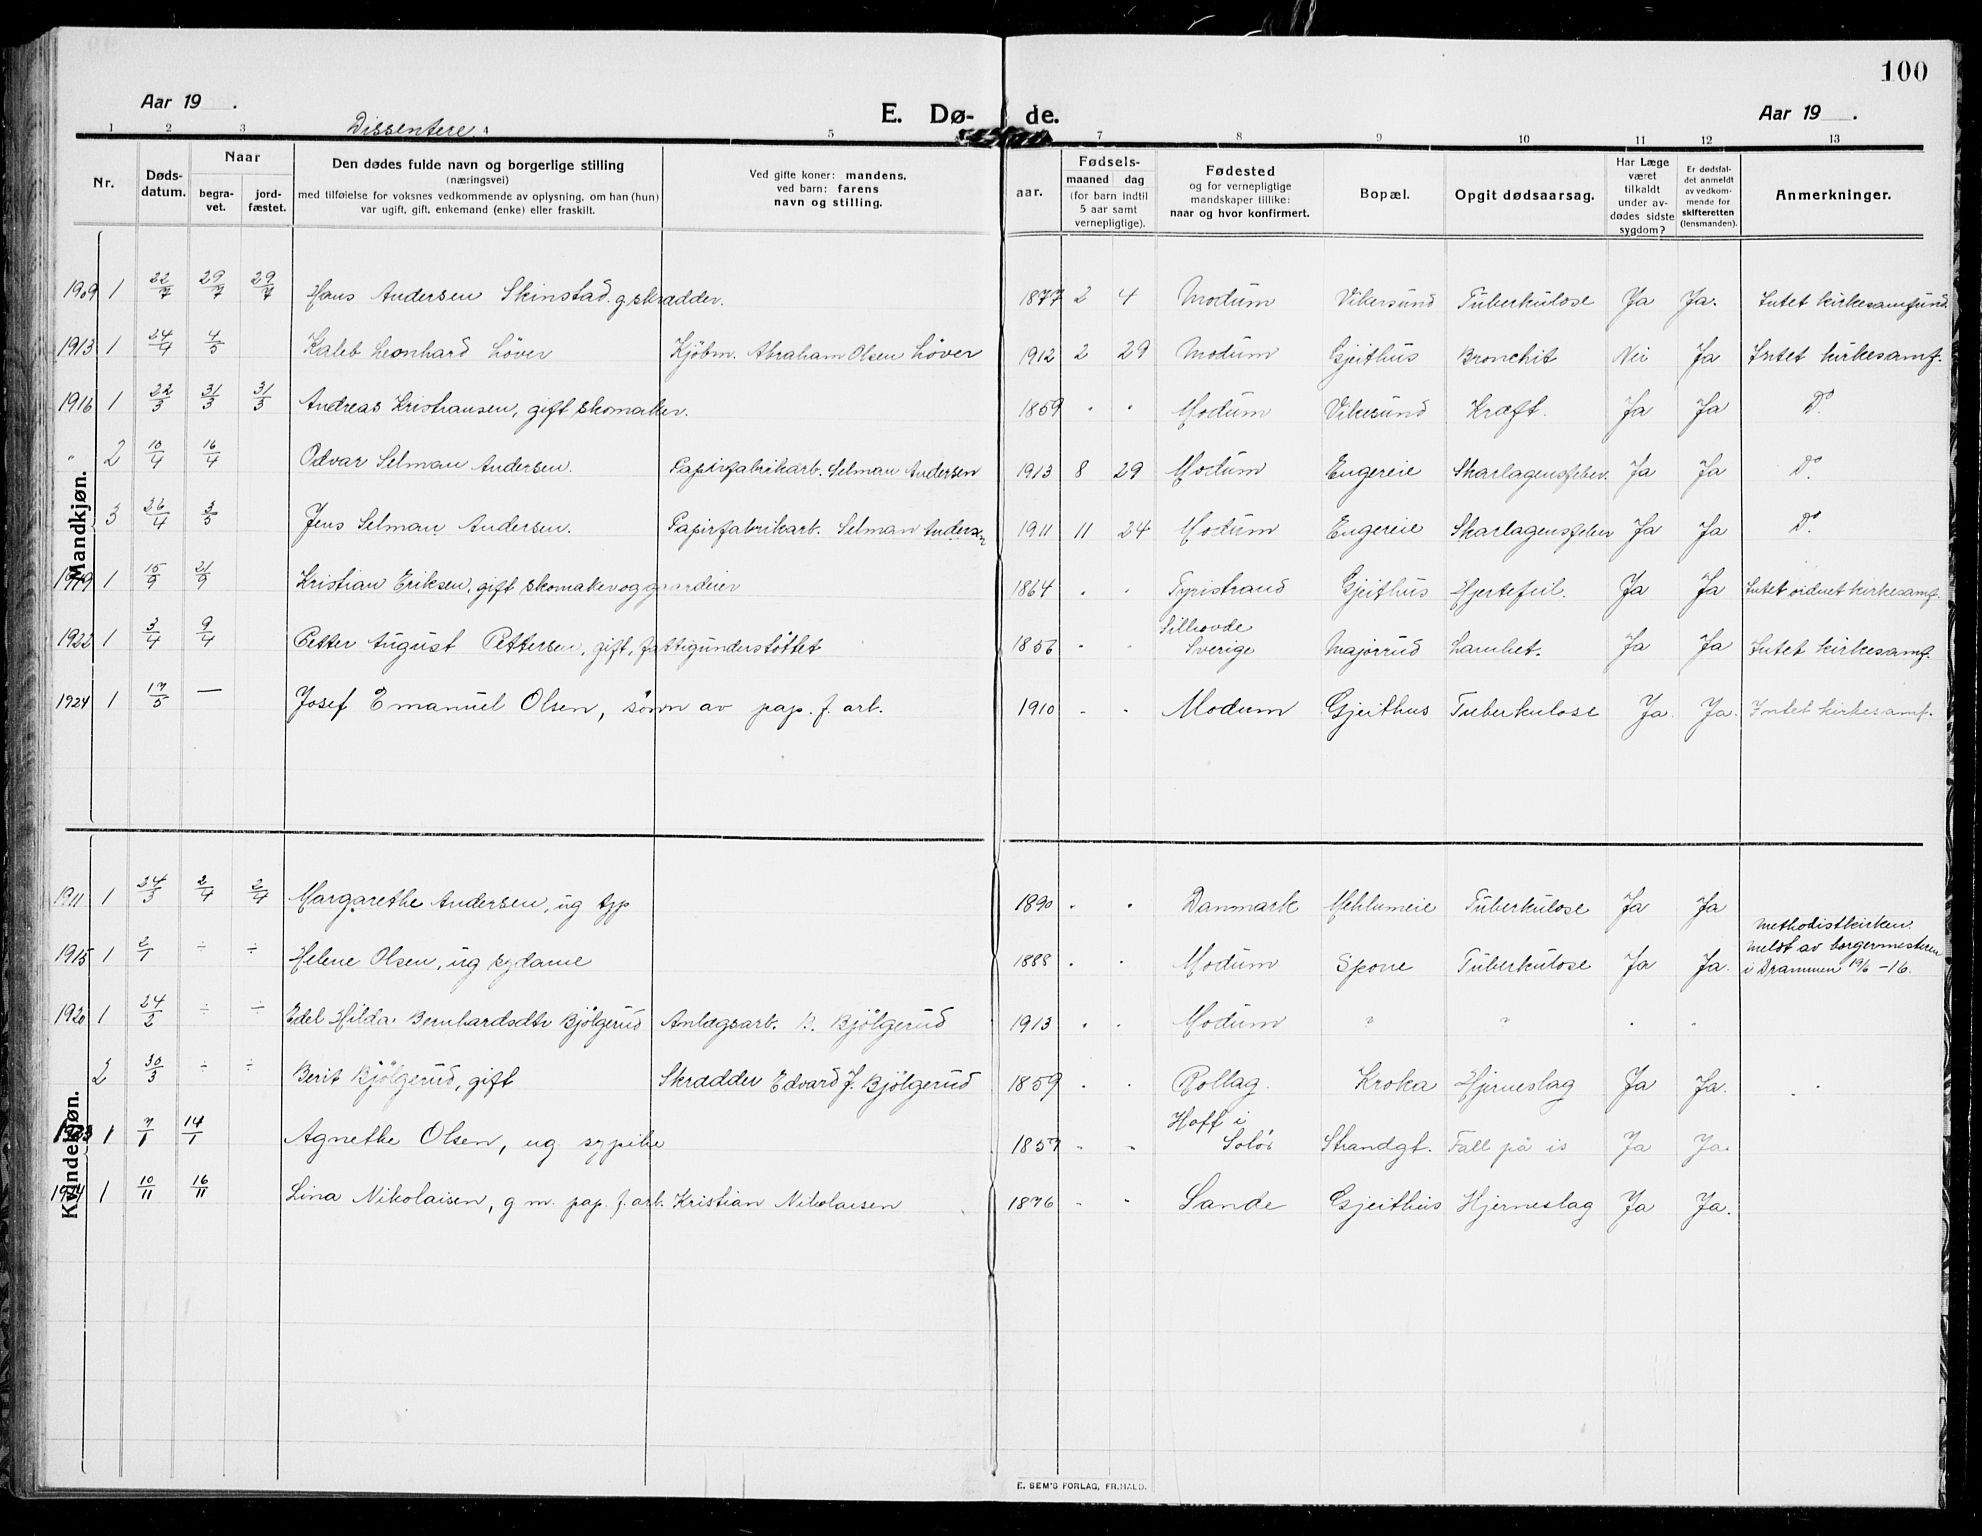 100
Aar 19 . Dissentere. E. Dø- de. Aar 19 .
1 2 3 4 5 7 8 9 10 11 12 13
Nr.
Døds-
datum.
Naar
begra-
vet.
jord-
fæstet.
Den dødes fulde navn og borgerlige stilling
(næringsvei)
med tilføielse for voksnes vedkommende av oplysning, om han (hun)
var ugift, gift, enkemand (enke) eller fraskilt.
Ved gifte koner: mandens,
ved barn: farens
navn og stilling.
aar.
Fødsels-
maaned dag
(for barn indtil
5 aar samt
vernepligtige).
Fødested
og for vernepligtige
mandskaper tillike:
naar og hvor konfirmert.
Bopæl.
Opgit dødsaarsag.
Har Læge
været
tilkaldt
under av-
dødes sidste
sygdom?
Er dødsfal-
det anmeldt
av vedkom-
mende for
skifteretten
(lensmanden).
Anmerkninger.
Mandkjøn.
1909 1 22/7 29/7 29/7 Hans Andersen Skinstad. g skrædder. 1877 2 4 Modum Vikersund Tuberkulose Ja Ja. Intet kirkesamfund.
1913 1 24/4 4/5 Kaleb Leonhard Løver Kjøbm. Abraham Olsen Løver 1912 2 29 Modum Gjeithus Bronchit Nei Ja Intet kirkesamf.
1916 1 22/3 31/3 31/3 Andreas Kristiansen, gift skomaker. 1859 " " Modum Vikesund Kræft. Ja Ja Do
" 2 10/4 16/4 Odvar Selman Andersen. Papirfabrikarb. Selman Andersen 1913 8 29 Modum Engereie Skarlagensfeber. Ja Ja Do
3 26/4 3/5 Jens Selman Andersen. Papirfabrikarb. Selman Andersen 1911 11 24 Modum Engereie Skarlagensfeber Ja Ja Do
1919 1 15/9 21/9 Kristian Eriksen, gift skomaker og gaardeier 1864 " " Tyristrand Gjeithus Hjertefeil. Ja Ja Intet ordnet kirkesamf.
1922 1 3/4 9/4 Petter August Pettersen, gift, fattigunderstøttet 1856 " " Sillhovde
Sverige Majorrud Lamhet. Ja Ja Intet kirkesamf.
1924 1 17/5 — Josef Emanuel Olsen, sønn av pap. f. arb. 1910 " " Modum Gjeithus Tuberkulose Ja. Ja. Intet kirkesamf.
Kvindekjøn.
1911 1 24/3 2/4 2/4 Margarethe Andersen, ug typ 1890 " " Danmark Mehlumeie Tuberkulose Ja Ja
1915 1 2/1 ÷ ÷ Helene Olsen, ug sydame 1888 " " Modum Spone Tuberkulose Ja Ja. Methodistkirken.
Meldt av borgermesteren
i Drammen 19/6 -16.
1920 1 24/2 ÷ ÷ Edel Hilda Bernhardsdtr Bjölgerud Anlægsarb. B. Bjölgerud 1913 " " Modum " " " "
2 30/3 ÷ ÷ Berit Bjölgerud, gift Skrædder Edvard J. Bjölgerud 1859 " " Rollag. Kroka Hjerneslag Ja Ja.
1923 1 7/1 14/1 Agnethe Olsen, ug. sypike 1857 " " Hoff i
Solør Strandgt. Fall på is Ja Ja.
1924 1 10/11 16/11 Lina Nikolaisen, g m. pap. f. arb. Kristian Nikolaisen 1876 " " Sande Gjeithus Hjerneslag Ja Ja.
E. SEM'S FORLAG, FR.HALD.